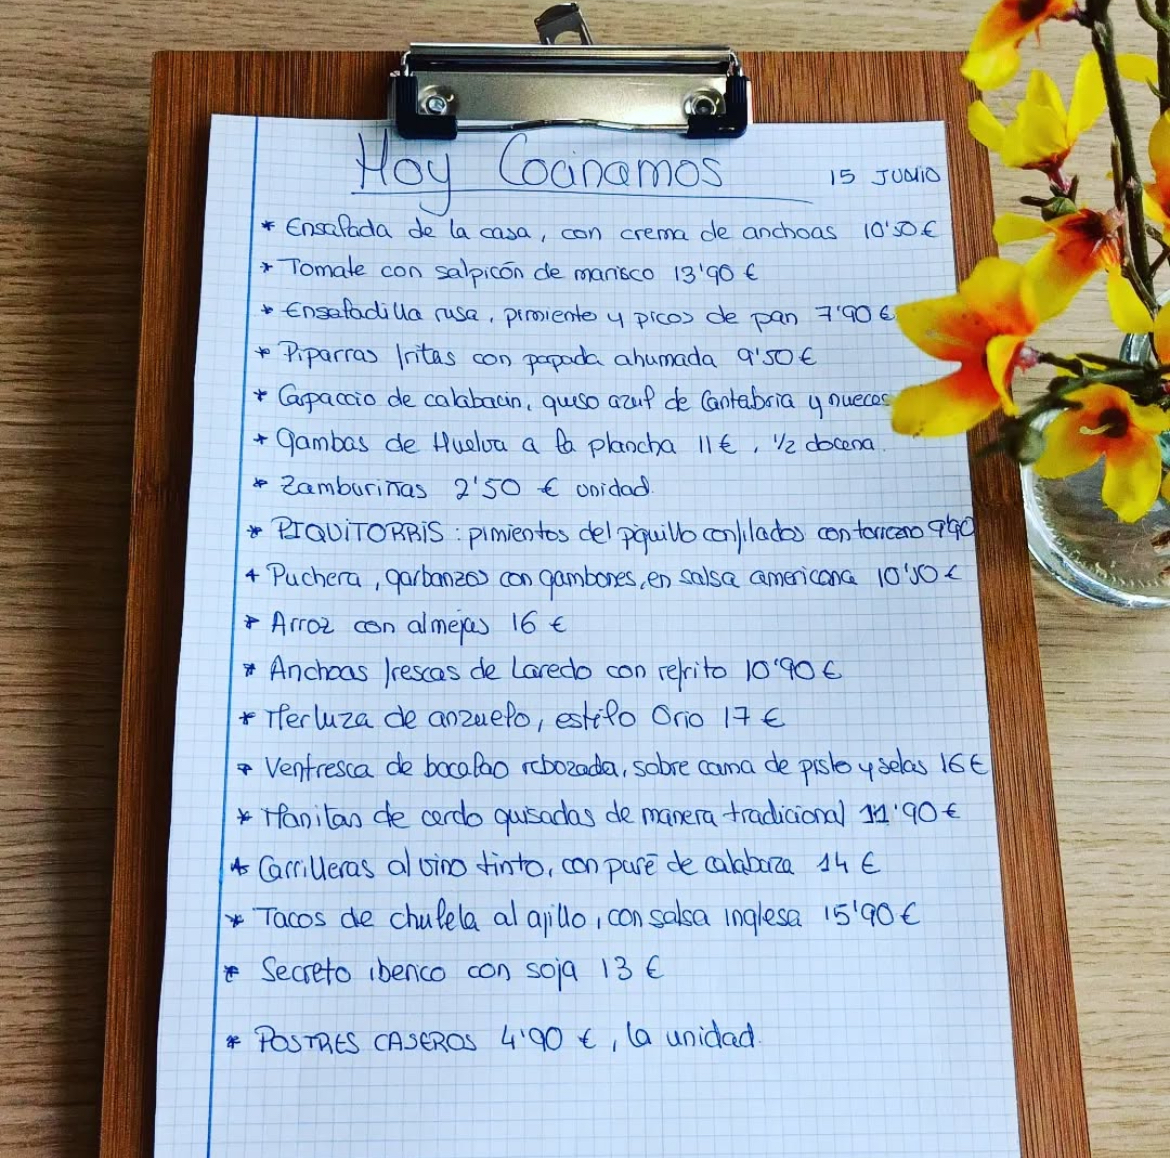 Hoy Cocinamos
15 JUNIO
* Ensalada de la casa, con crema de anchoas 10'50 €
* Tomate con salpicón de marisco 13'90 €
* Ensaladilla rusa, pimiento y picos de pan 7'90 €
* Piparras fritas con papada ahumada 9'50 €
* Carpaccio de calabacin, queso azul de Cantabria y nueces
* Gambas de Huelva a la plancha 11 €, 1/2 docena.
* Zamburiñas 2'50 € unidad.
* PIQUITORRIS: pimientos del piquillo confitados con torrezno 9'90
* Puchera, garbanzos con gambones, en salsa americana 10'50 €
* Arroz con almejas 16 €
* Anchoas frescas de Laredo con refrito 10'90 €
* Merluza de anzuelo, estilo Orio 17 €
* Ventresca de bacalao rebozada, sobre cama de pisto y setas 16 €
* Manitas de cerdo guisadas de manera tradicional 11'90 €
* Carrilleras al vino tinto, con puré de calabaza 14 €
* Tacos de chuleta al ajillo, con salsa inglesa 15'90 €
* Secreto iberico con soja 13 €
* POSTRES CASEROS 4'90 €, la unidad.